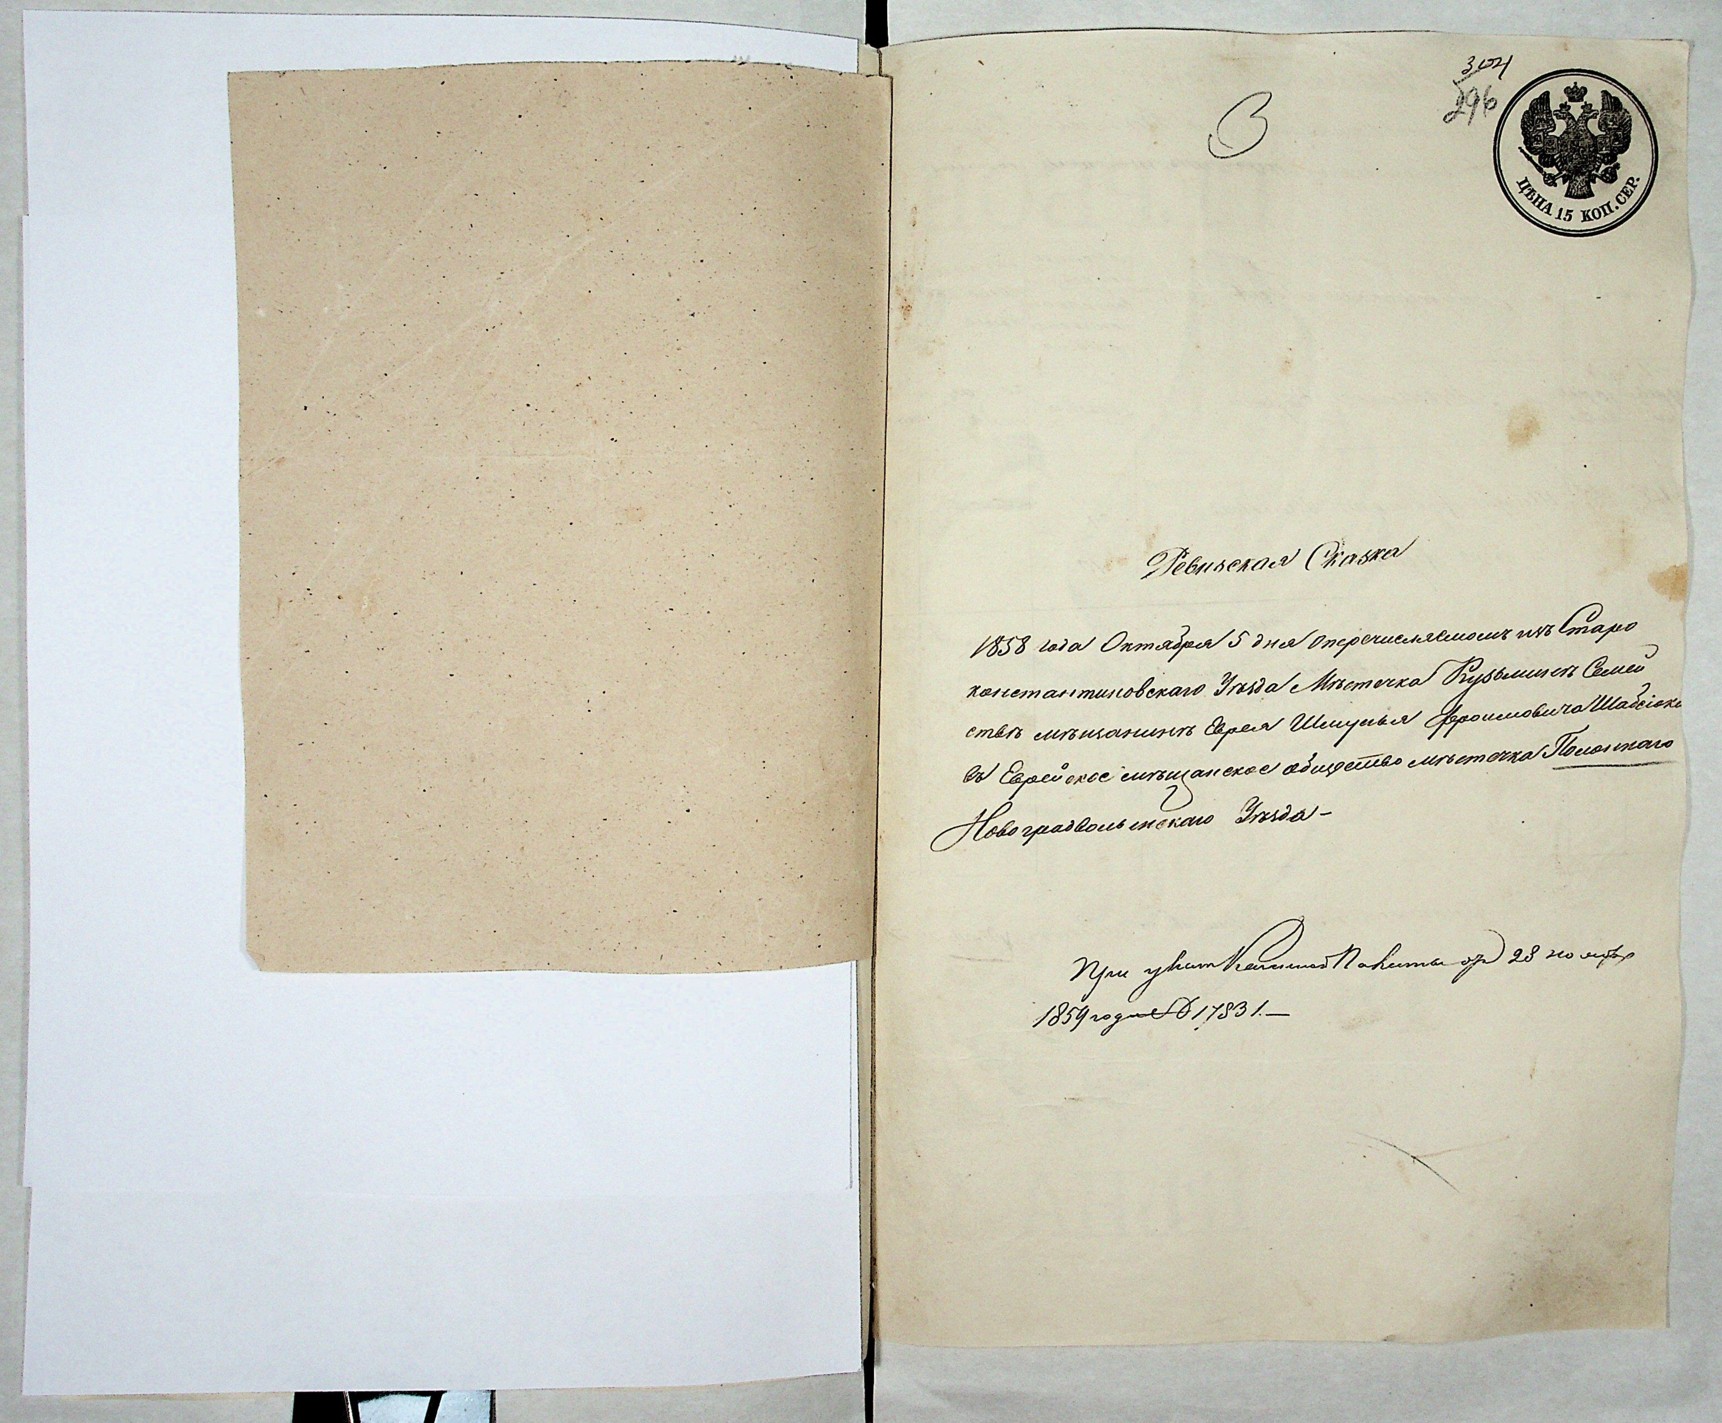 304
296
ЦѢНА 15 КОП. СЕР.
Ревизская Сказка
1858 года Октября 5 дня о перечисляемомъ изъ Старо
константиновскаго Уѣзда Мѣстечка Кузьминъ Семей
ствѣ мѣщанинѣ Еврея Шмуля Фроимовича
въ Еврейское мѣщанское общество мѣстечка Полонскаго
Новоградволынскаго Уѣзда –
При указѣ Казенной Палаты отъ 28 ноября
1859 года № 17831.—